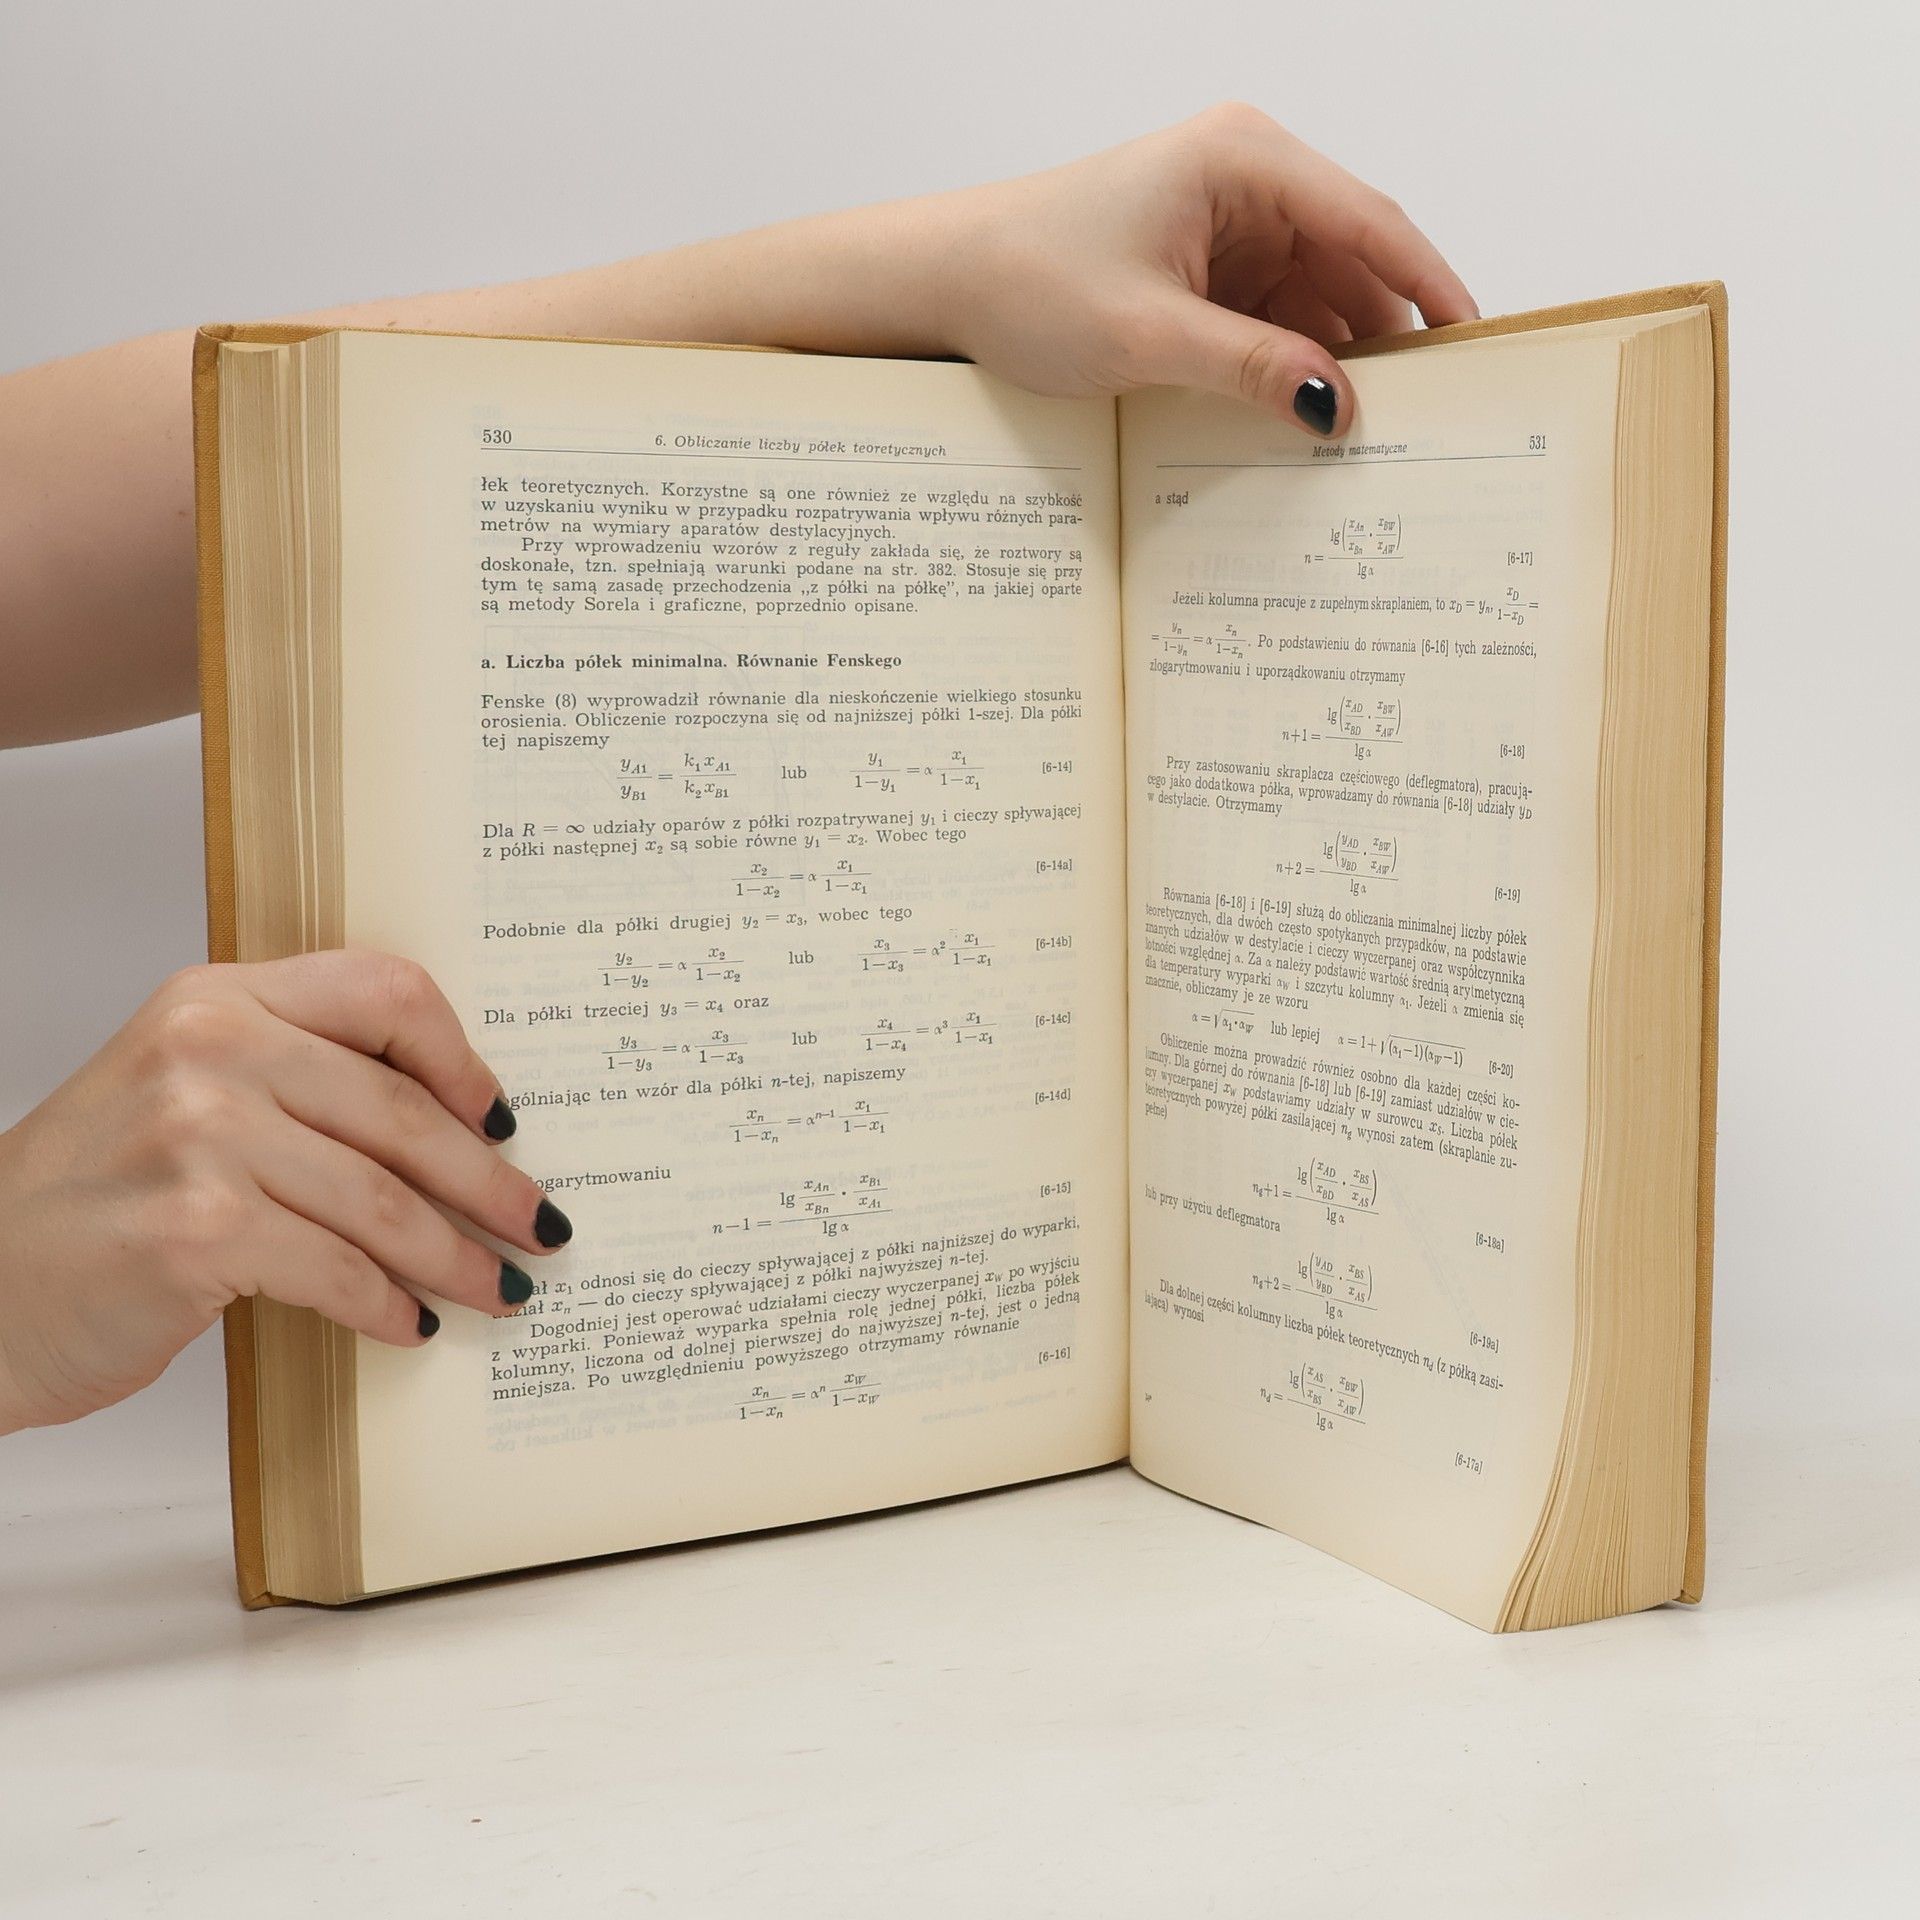 530
6. Obliczanie liczby półek teoretycznych
łek teoretycznych. Korzystne są one również ze względu na szybkość
w uzyskaniu wyniku w przypadku rozpatrywania wpływu różnych para-
metrów na wymiary aparatów destylacyjnych.
Przy wprowadzeniu wzorów z reguły zakłada się, że roztwory są
doskonałe, tzn. spełniają warunki podane na str. 382. Stosuje się przy
tym tę samą zasadę przechodzenia „z półki na półkę”, na jakiej oparte
są metody Sorela i graficzne, poprzednio opisane.
a. Liczba półek minimalna. Równanie Fenskego
Fenske (8) wyprowadził równanie dla nieskończenie wielkiego stosunku
orosienia. Obliczenie rozpoczyna się od najniższej półki 1-szej. Dla półki
tej napiszemy
y_A1/y_B1 = k₁x_A1/k₂x_B1 lub y₁/(1−y₁) = α x₁/(1−x₁) [6-14]
Dla R = ∞ udziały oparów z półki rozpatrywanej y₁ i cieczy spływającej
z półki następnej x₂ są sobie równe y₁ = x₂. Wobec tego
x₂/(1−x₂) = α x₁/(1−x₁) [6-14a]
Podobnie dla półki drugiej y₂ = x₃, wobec tego
y₂/(1−y₂) = α x₂/(1−x₂) lub x₃/(1−x₃) = α² x₁/(1−x₁) [6-14b]
Dla półki trzeciej y₃ = x₄ oraz
y₃/(1−y₃) = α x₃/(1−x₃) lub x₄/(1−x₄) = α³ x₁/(1−x₁) [6-14c]
gólniając ten wzór dla półki n-tej, napiszemy
xₙ/(1−xₙ) = αⁿ⁻¹ x₁/(1−x₁) [6-14d]
ogarytmowaniu
n−1 = lg (x_An/x_Bn · x_B1/x_A1) / lg α [6-15]
ał x₁ odnosi się do cieczy spływającej z półki najniższej do wyparki,
udział xₙ — do cieczy spływającej z półki najwyższej n-tej.
Dogodniej jest operować udziałami cieczy wyczerpanej x_W po wyjściu
z wyparki. Ponieważ wyparka spełnia rolę jednej półki, liczba półek
kolumny, liczona od dolnej pierwszej do najwyższej n-tej, jest o jedną
mniejsza. Po uwzględnieniu powyższego otrzymamy równanie
xₙ/(1−xₙ) = αⁿ x_W/(1−x_W) [6-16]
Metody matematyczne
531
a stąd
n = lg(x_An/x_Bn · x_BW/x_AW) / lg α [6-17]
Jeżeli kolumna pracuje z zupełnym skraplaniem, to x_D = yₙ, x_D/(1−x_D) =
= yₙ/(1−yₙ) = α xₙ/(1−xₙ). Po podstawieniu do równania [6-16] tych zależności,
zlogarytmowaniu i uporządkowaniu otrzymamy
n+1 = lg(x_AD/x_BD · x_BW/x_AW) / lg α [6-18]
Przy zastosowaniu skraplacza częściowego (deflegmatora), pracują-
cego jako dodatkowa półka, wprowadzamy do równania [6-18] udziały y_D
w destylacie. Otrzymamy
n+2 = lg(y_AD/y_BD · x_BW/x_AW) / lg α [6-19]
Równania [6-18] i [6-19] służą do obliczania minimalnej liczby półek
teoretycznych, dla dwóch często spotykanych przypadków, na podstawie
znanych udziałów w destylacie i cieczy wyczerpanej oraz współczynnika
lotności względnej α. Za α należy podstawić wartość średnią arytmetyczną
dla temperatury wyparki α_W i szczytu kolumny α₁. Jeżeli α zmienia się
znacznie, obliczamy je ze wzoru
α = √(α₁·α_W) lub lepiej α = 1+√((α₁−1)(α_W−1)) [6-20]
Obliczenie można prowadzić również osobno dla każdej części ko-
lumny. Dla górnej do równania [6-18] lub [6-19] zamiast udziałów w cie-
czy wyczerpanej x_W podstawiamy udziały w surowcu x_S. Liczba półek
teoretycznych powyżej półki zasilającej n_g wynosi zatem (skraplanie zu-
pełne)
n_g+1 = lg(x_AD/x_BD · x_BS/x_AS) / lg α [6-18a]
lub przy użyciu deflegmatora
n_g+2 = lg(y_AD/y_BD · x_BS/x_AS) / lg α [6-19a]
Dla dolnej części kolumny liczba półek teoretycznych n_d (z półką zasi-
lającą) wynosi
n_d = lg(x_AS/x_BS · x_BW/x_AW) / lg α [6-17a]